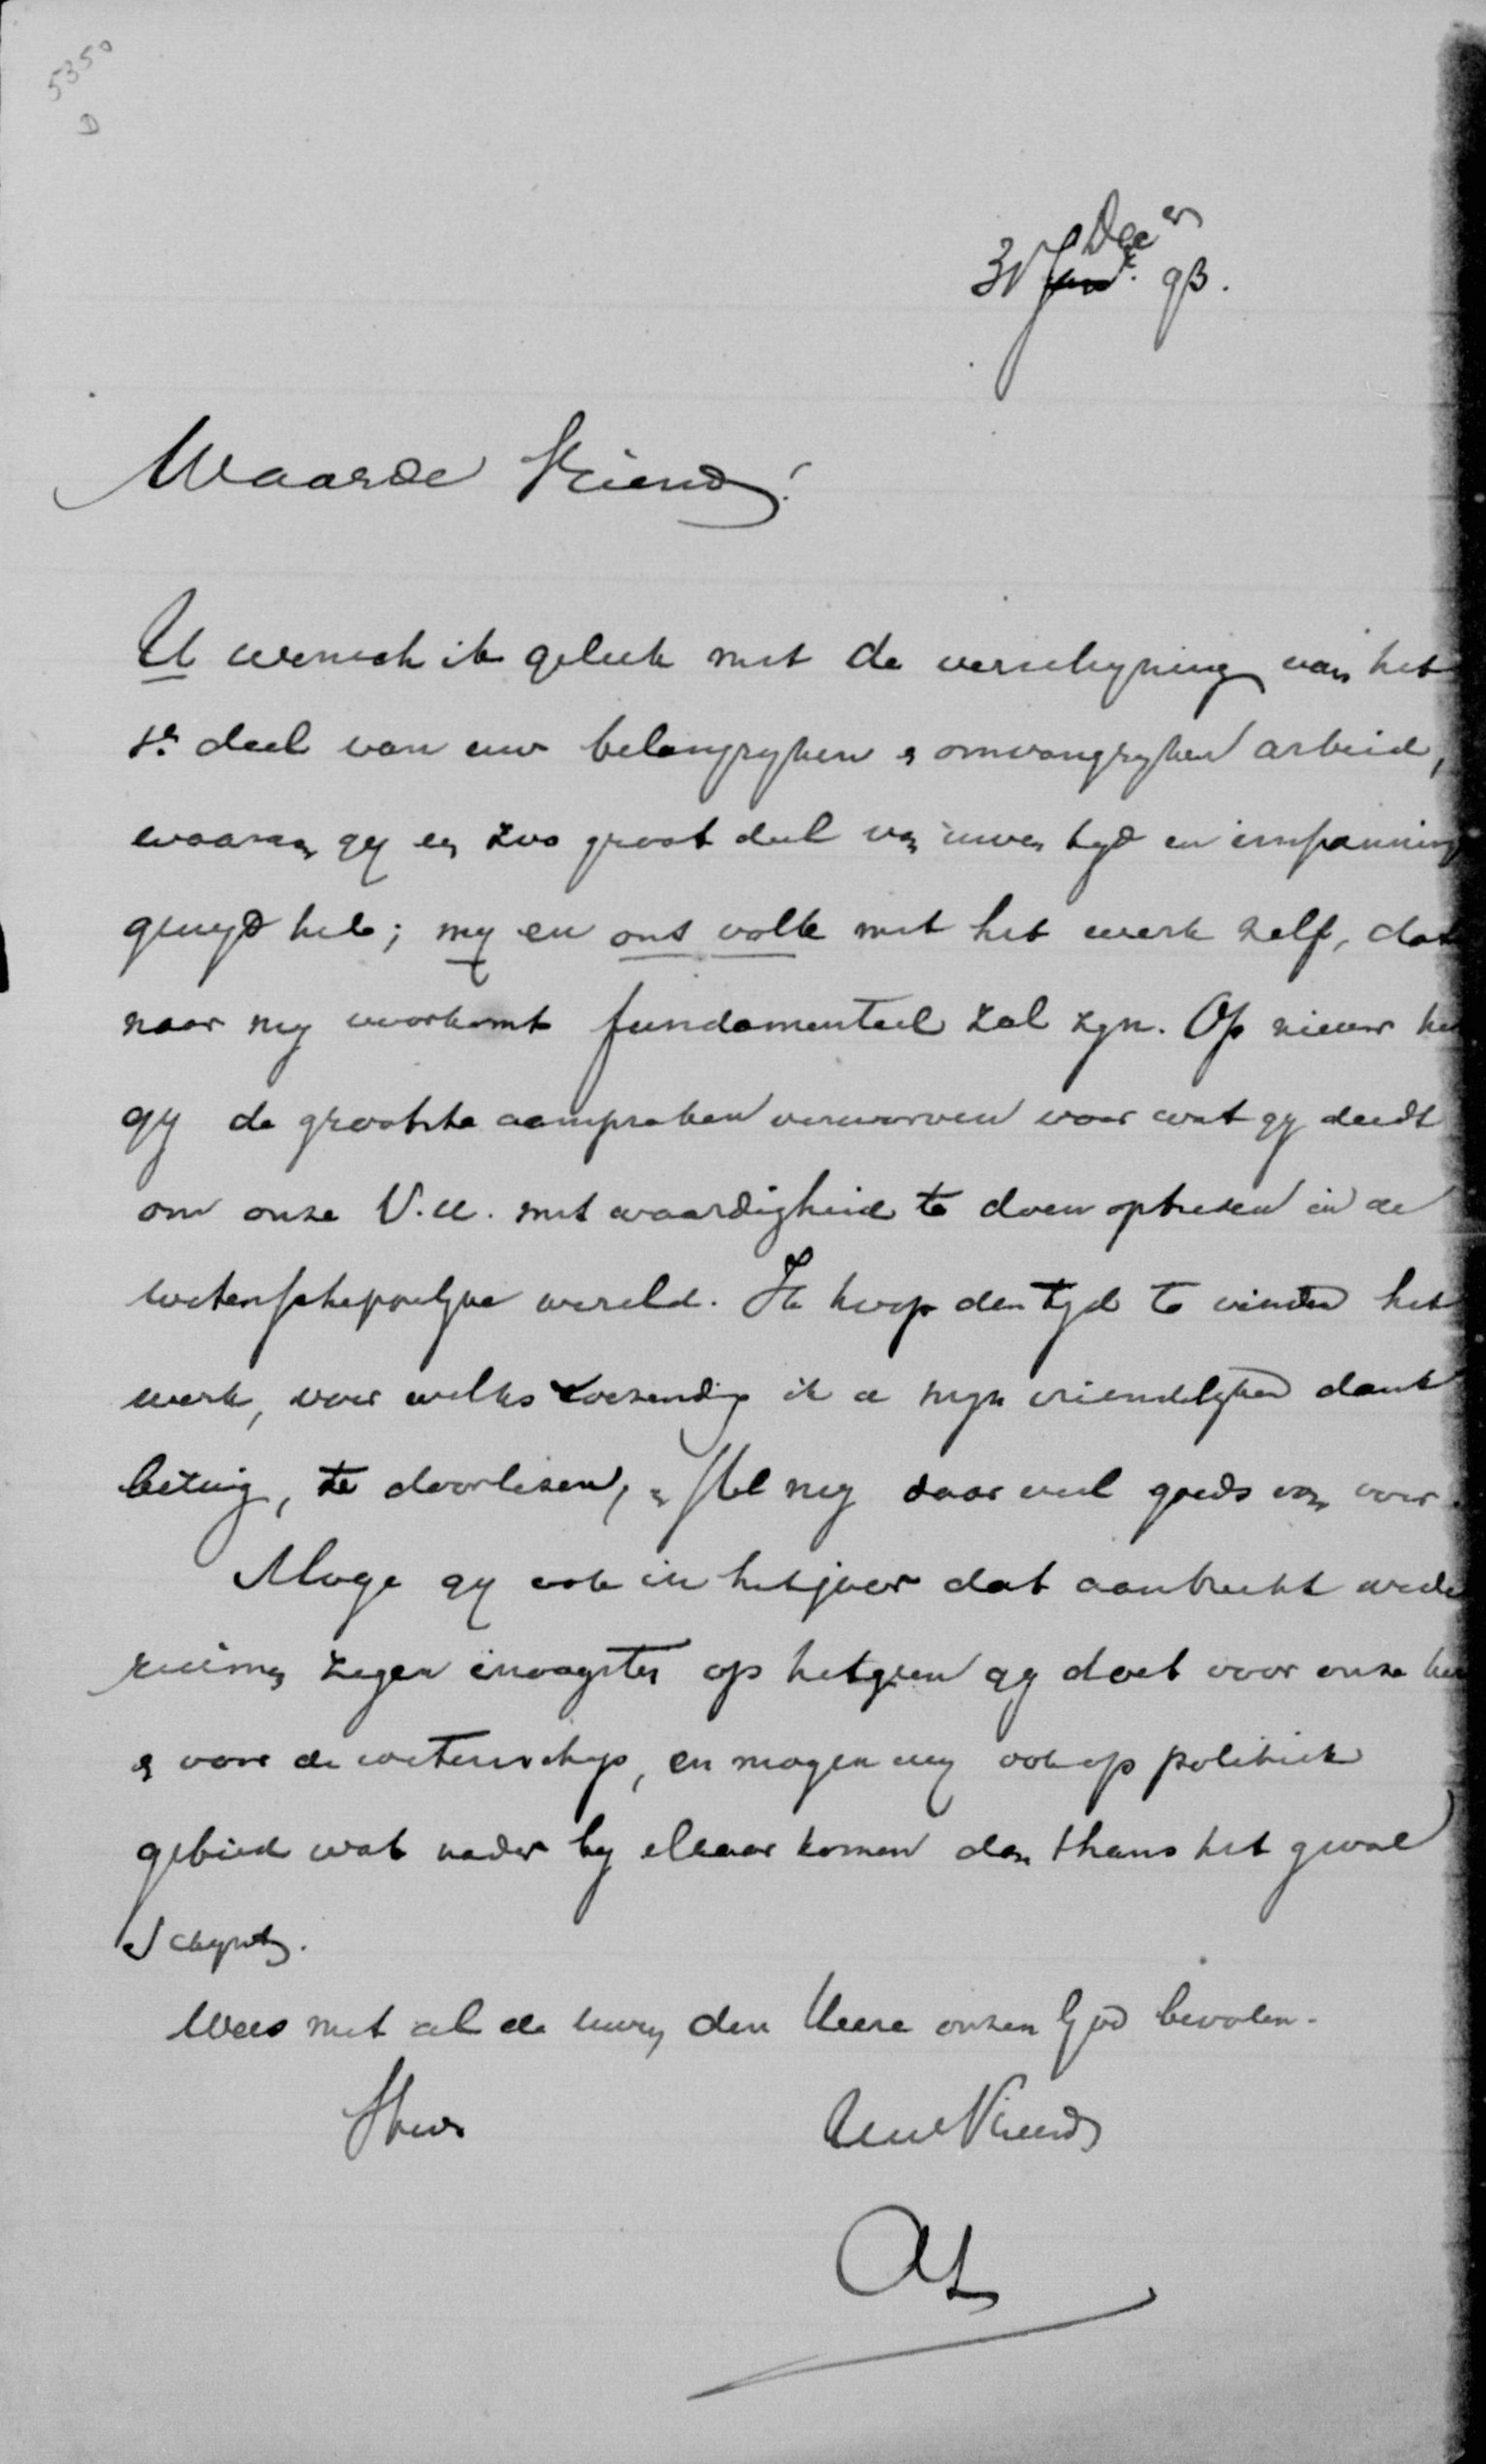 5350
D
31 Decer 93.
Waarde Vriend!
U wensch ik geluk met de verschyning van het
1e deel van uw belangryken & omvangryken arbeid,
waaraan gy een zoo groot deel van uwen tyd en inspanning
gewyd heb; my en ons volk met het werk zelf, dat
naar my voorkomt fundamenteel zal zyn. Op nieuw he
gy de grootste aanspraken verworven voor wat gy deedt
om onze V.U. met waardigheid te doen optreden in de
wetenschappelyke wereld. Ik hoop den tyd te vinden het
werk, voor welks toezending ik u myn vriendelyken dank
betuig, te doorlezen, & stel my daar veel goeds van voor.
Moge gy ook in het jaar dat aanbreekt wede
ruimen zegen inoogsten op hetgeen gy doet voor onze
& voor de wetenschap, en mogen wy ook op politiek
gebied wat nader by elkaar komen dan thans het geval
schynt.
Wees met al de uwen den Heere onzen God bevolen.
Uw Vriend